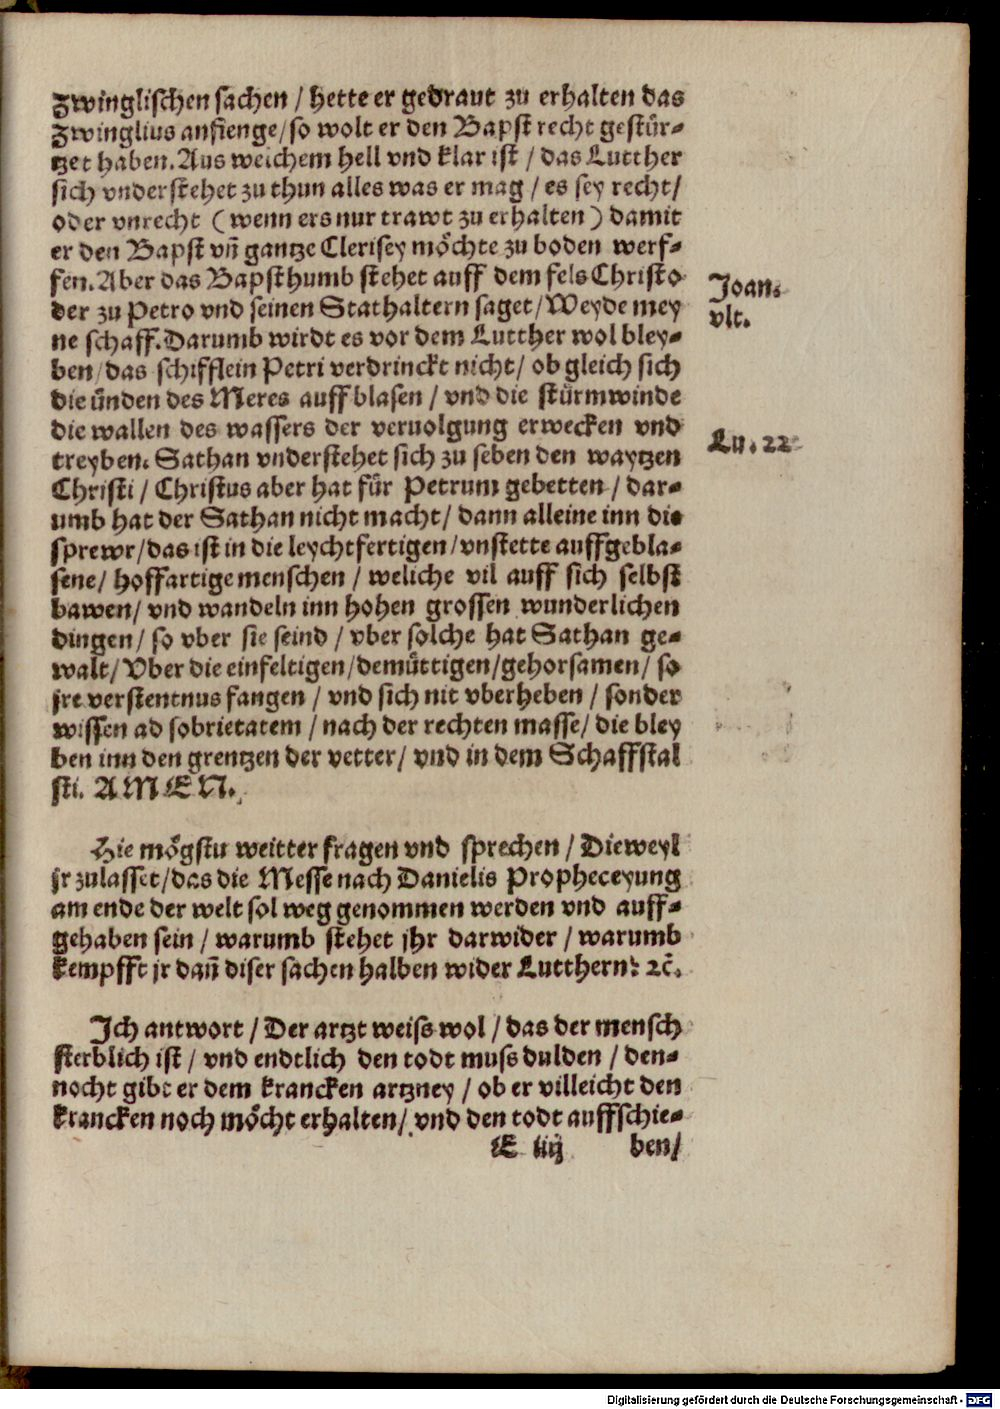 Zwinglischen sachen / hette er gedraut zu erhalten das
Zwinglius anfienge / so wolt er den Bapst recht gestür⸗
tzet haben. Aus welchem hell vnd klar ist / das Lutther
sich vnderstehet zu thun alles was er mag / es sey recht /
oder vnrecht ( wenn ers nur trawt zu erhalten ) damit
er den Bapst vn̄ gantze Clerisey möchte zu boden werf⸗
fen. Aber das Bapsthumb stehet auff dem fels Christo
der zu Petro vnd seinen Stathaltern saget / Weyde mey
ne schaff. Darumb wirdt es vor dem Lutther wol bley⸗
ben / das schifflein Petri verdrinckt nicht / ob gleich sich
die ünden des Meres auff blasen / vnd die stürmwinde
die wallen des wassers der veruolgung erwecken vnd
treyben. Sathan vnderstehet sich zu seben den waytzen
Christi / Christus aber hat für Petrum gebetten / dar⸗
umb hat der Sathan nicht macht / dann alleine inn die
sprewr / das ist in die leychtfertigen / vnstette auffgebla⸗
sene / hoffartige menschen / weliche vil auff sich selbst
bawen / vnd wandeln inn hohen grossen wunderlichen
dingen / so vber sie seind / vber solche hat Sathan ge⸗
walt / Vber die einfeltigen / demüttigen / gehorsamen / so
jre verstentnus fangen / vnd sich nit vberheben / sonder
wissen ad sobrietatem / nach der rechten masse / die bley
ben inn den grentzen der vetter / vnd in dem Schaffstal
sti. AMEN.
Joan.
vlt.
Lu. 22
Hie mögstu weitter fragen vnd sprechen / Dieweyl
jr zulasset / das die Messe nach Danielis Propheceyung
am ende der welt sol weg genommen werden vnd auff⸗
gehaben sein / warumb stehet jhr darwider / warumb
kempfft jr dan̄ diser sachen halben wider Lutthern? ꝛc̄.
Ich antwort / Der artzt weiss wol / das der mensch
sterblich ist / vnd endtlich den todt muss dulden / den⸗
nocht gibt er dem krancken artzney / ob er villeicht den
krancken noch möcht erhalten / vnd den todt auffschie⸗
E iiij ben /
Digitalisierung gefördert durch die Deutsche Forschungsgemeinschaft - DFG